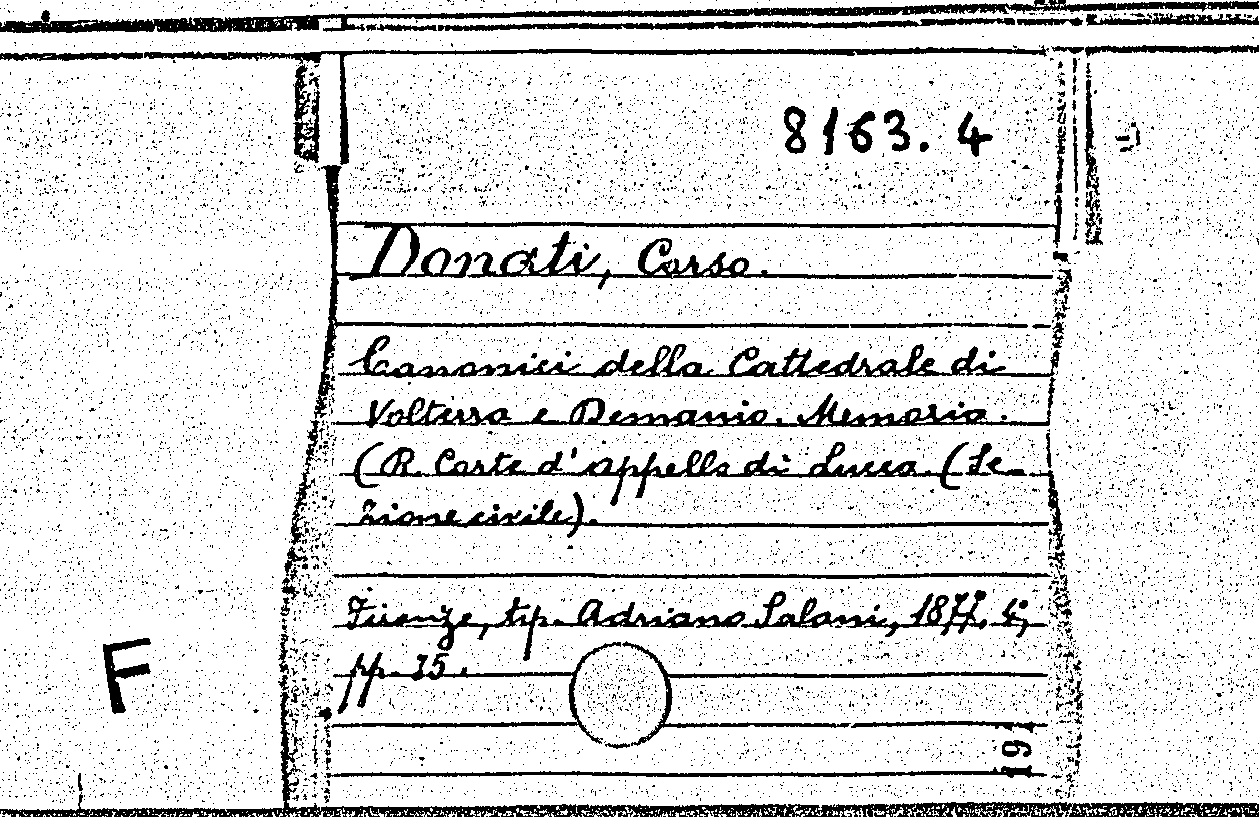 8163. 4
Donati, Corso.
Canonici della Cattedrale di
Volterra e Demanio. Memoria.
(R. Corte d'appello di Lucca. (Se-
zione civile).
Firenze, tip. Adriano Salani, 1877, 4°,
pp. 35.
F
191